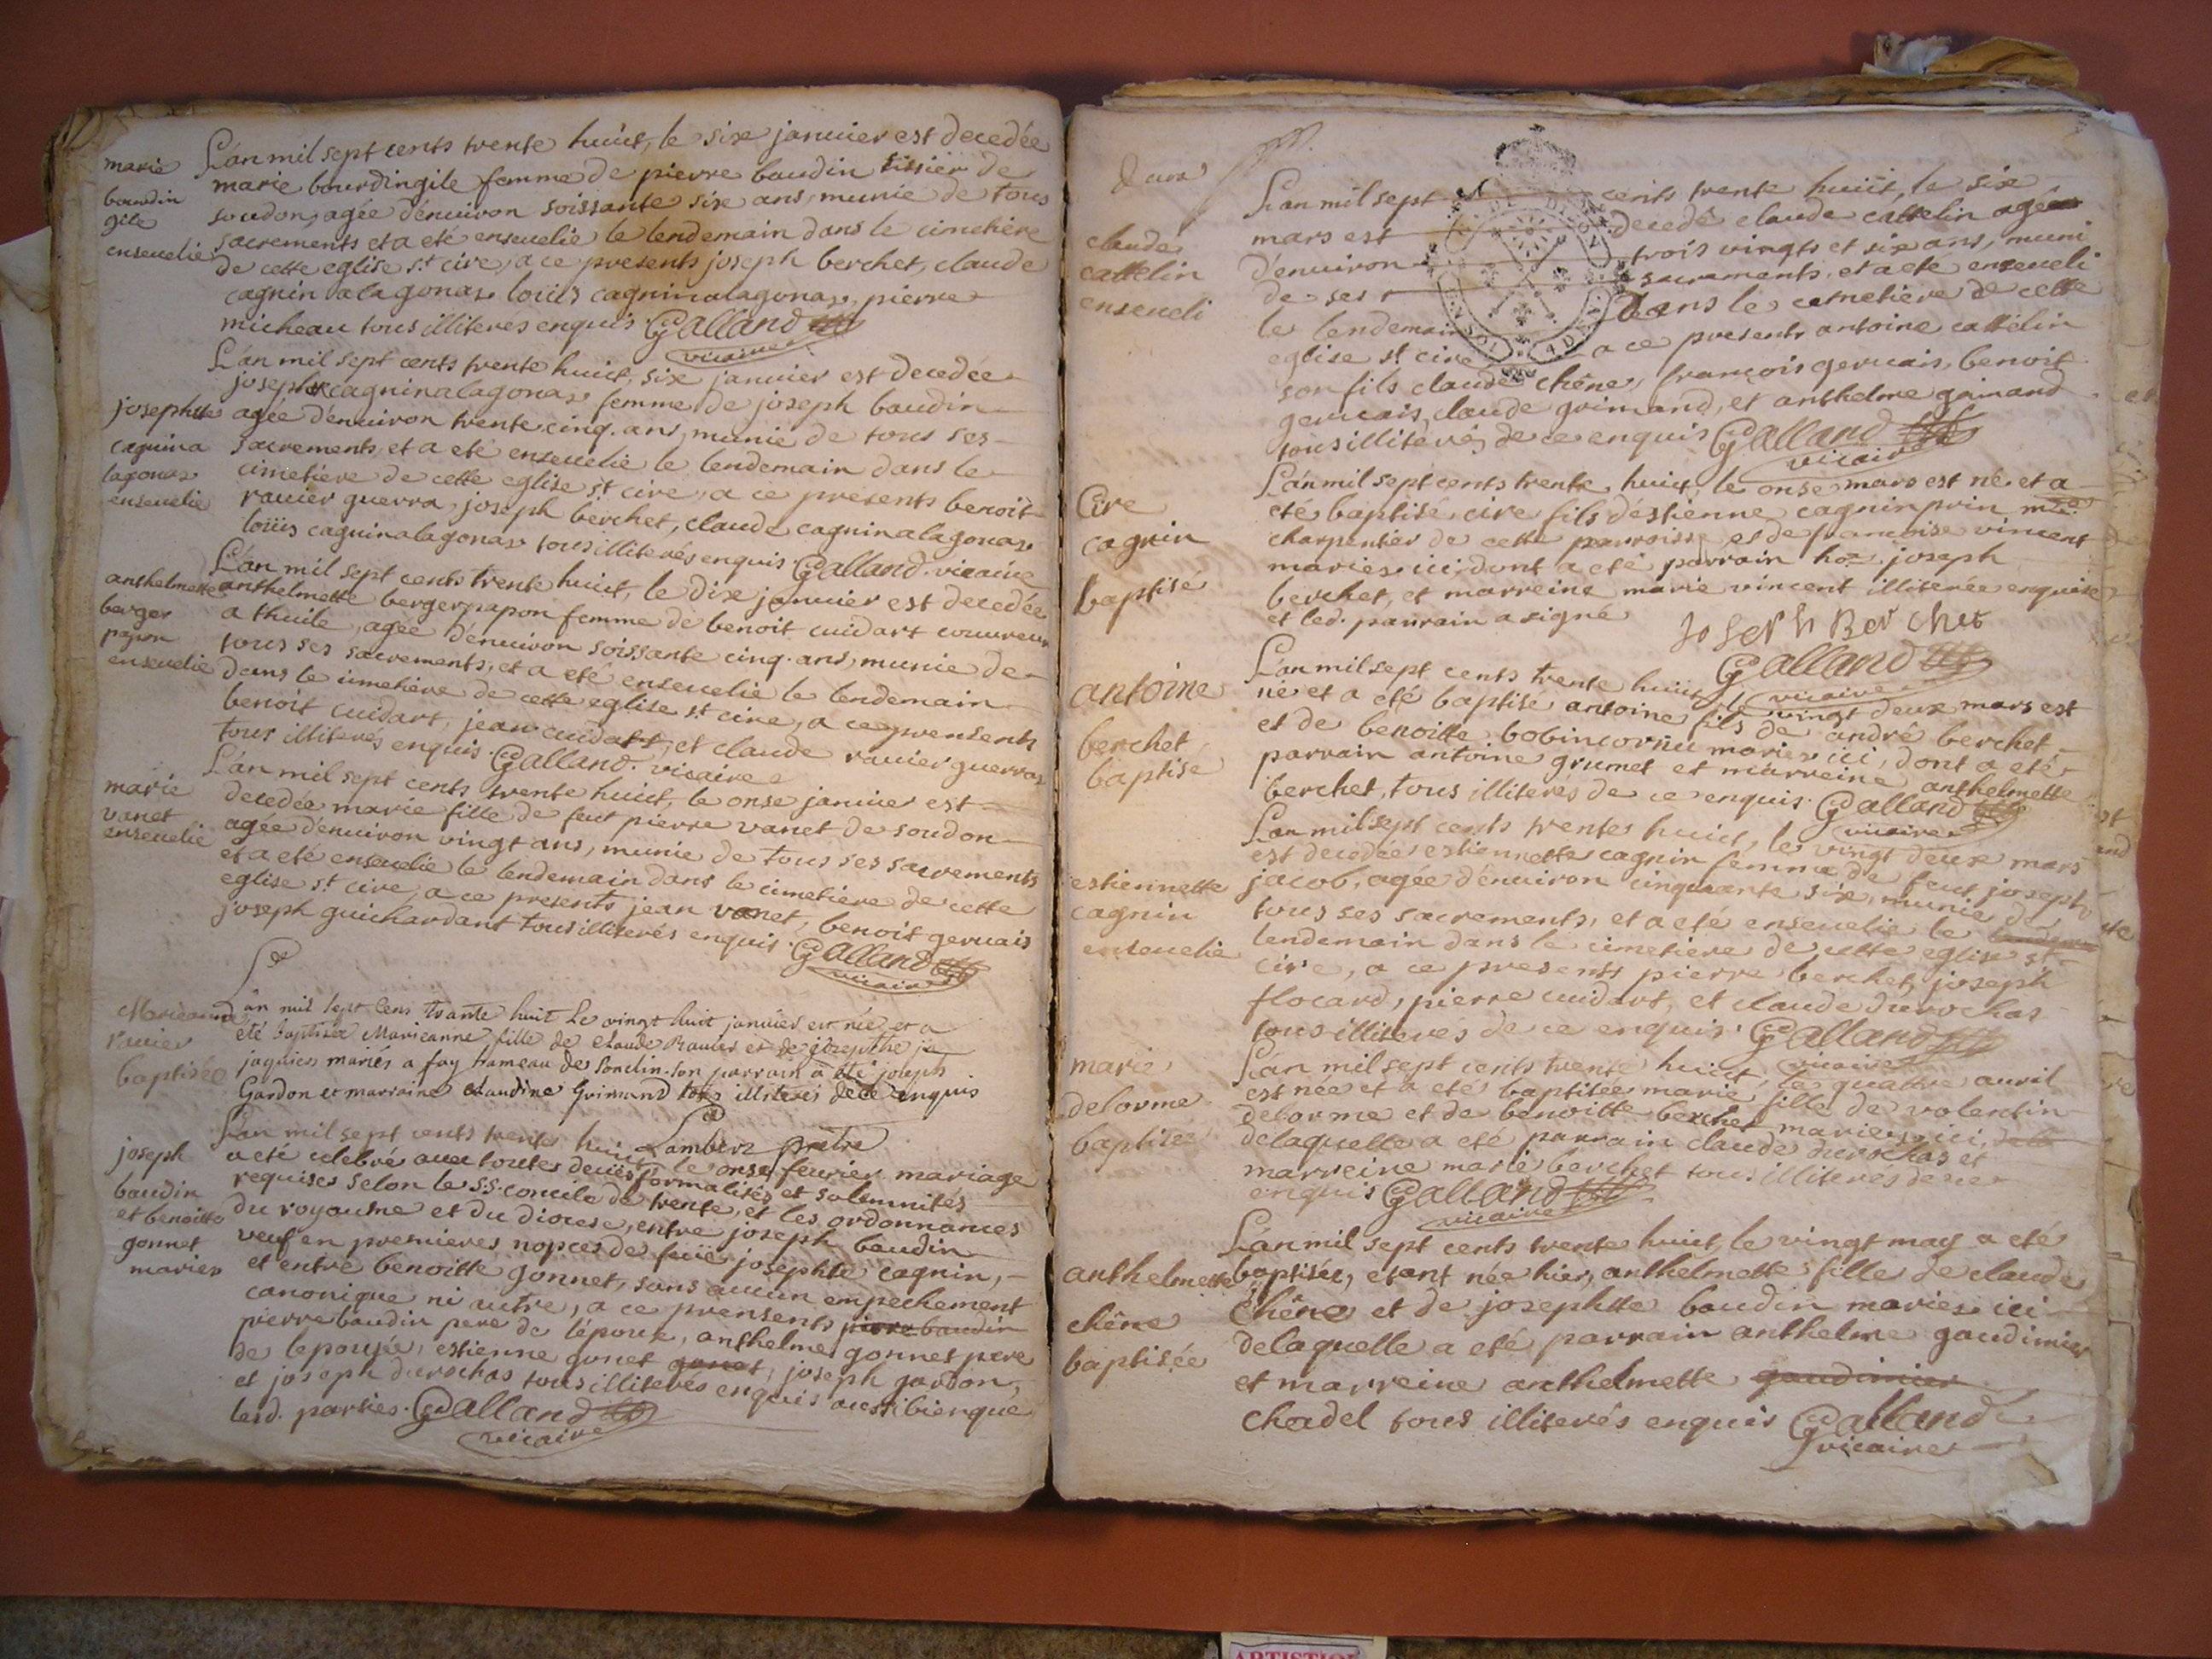 marie
baudin
gile
enseuelie
L'an mil sept cents trente huict, le six januier est decedée
marie bourdingile femme de pierre baudin tissier de
soudon, agée d'enuiron soissante six ans, munie de tous
sacrements et a eté enseuelie le lendemain dans le cimetière
de cette eglise st cire, a ce presents joseph berchet, claude
cagnin alagonas, loüis cagninalagonas, pierre
micheau tous illiterés enquis. Galland
vicaire
L'an mil sept cents trente huict, six januier est decedée
josephte
cagnina
lagonas
enseuelie
josephte cagninalagonas femme de joseph baudin
agée d'enuiron trente cinq ans, munie de tous ses
sacrements, et a eté enseuelie le lendemain dans le
cimetiere de cette eglise st cire, a ce presents benoit
rauier guerra, joseph berchet, claude cagninalagonas
loüis cagninalagonas tous illiterés enquis. Galland. vicaire
L'an mil sept cents trente huict, le dix januier est decedée
anthelmette
berger
papon
enseuelie
anthelmette bergerpapon femme de benoit cuidart couureur
a thuile, agée d'enuiron soissante cinq ans, munie de
tous ses sacrements, et a eté enseuelie le lendemain
dans le cimetière de cette eglise st cire, a ce prensents
benoit cuidart, jean cuidart, et claude rauier guerraz
tous illiterés enquis. Galland. vicaire
L'an mil sept cents trente huict, le onse januier est
marie
vanet
enseuelie
decedée marie fille de feut pierre vanet de soudon
agée d'enuiron vingt ans, munie de tous ses sacrements
et a eté enseuelie le lendemain dans le cimetière de cette
eglise st cire, a ce presents jean vanet, benoit geruais
joseph guichardant tous illiterés enquis. Galland
vicaire
Marieanne
rauier
baptisée
L'an mil sept cens trante huit le vingt huit januier est née et a
eté baptisée Marieanne fille de claude Rauier et de josepthe
jaquier mariés a fay hameau de Soudin son parrain a eté joseph
Gardon et marraine claudine Grimand tous illiterés de ce enquis
Lambert prêtre
joseph
baudin
et benoitte
gonnet
mariés
L'an mil sept cents trente huict le onse feurier mariage
a eté celebré auec toutes deues formalités et solemnités
requises selon le s.s. concile de trente, et les ordonnances
du royaume et du diocese, entre joseph baudin
veuf en premieres nopces de feüe josephte cagnin,
et entre benoitte gonnet, sans aucun empechement
canonique ni autre, a ce prensents pierre baudin
pierre baudin pere de l'époux, anthelme gonnet pere
de lepousée, estienne gonet gonet, joseph gardon,
et joseph durochas tous illiterés enquis aussi bienque
lesd. parties. Galland
vicaire
claude
cattelin
enseueli
L'an mil sept cents trente huiït, le six
mars est decedé claude cattelin agé
d'enuiron trois vingts et six ans, muni
de ses sacrements, et a eté enseueli
le lendemain dans le cemetière de cette
eglise st cire a ce presents antoine cattelin
son fils claude chêne, françois geruais, benoit
geruais, claude grimand, et anthelme gainand
tous illiterés, de ce enquis Galland
vicaire
Cire
cagnin
baptisé
L'an mil sept cents trente huict, le onse mars est né et a
eté baptisé, cire fils d'estienne cagninprin me
charpentier de cette parroisse et de francoise vincent
mariés ici dont a eté parrain hoe joseph
berchet, et marreine marie vincent illiterée enquise
et led. parrain a signé
Joseph Berchet
Galland
vicaire
antoine
berchet
baptisé
L'an mil sept cents trente huict, le vingt deux mars est
né et a eté baptisé antoine fils de andré berchet
et de benoitte bobincornu mariés ici, dont a eté
parrain antoine grumet et marreine anthelmette
berchet, tous illiterés de ce enquis. Galland
vicaire
estiennette
cagnin
enseuelie
L'an mil sept cents trentes huict, le vingt deux mars
est decedée estiennette cagnin femme de feut joseph
jacob, agée d'enuiron cinquante six, munie de
tous ses sacrements, et a eté enseuelie le
lendemain dans le cimetiere de cette eglise st
cire, a ce presents pierre berchet, joseph
flocard, pierre cuidart, et claude durochas
tous illiterés de ce enquis. Galland
vicaire
marie
delorme
baptisée
L'an mil sept cents trente huict, le quatre auril
est née et a eté baptisée marie fille de valentin
delorme et de benoitte berchet mariés ici,
delaquelle a eté parrain claude durochas et
marreine marie berchet tous illiterés de ce
enquis Galland
vicaire
anthelmette
chêne
baptisée
L'an mil sept cents trente huict, le vingt may a eté
baptisée, etant née hier, anthelmette fille de claude
Chêne et de josephte baudin mariés ici
delaquelle a eté parrain anthelme gaudimier
et marreine anthelmette gaudimier
chadel tous illiterés enquis Galland
vicaire